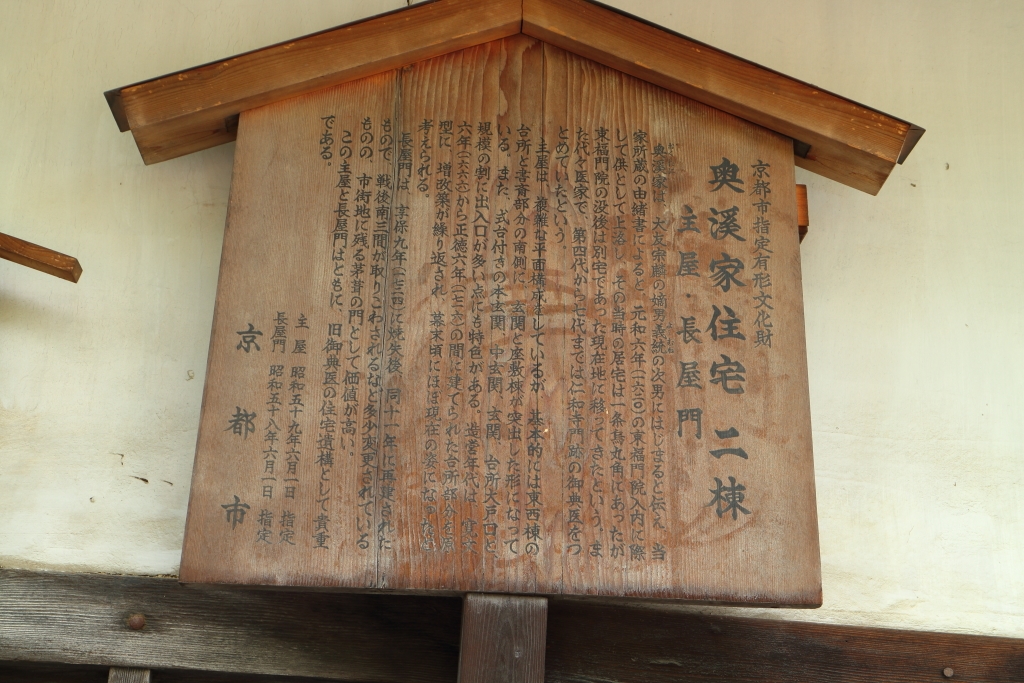 京都市指定有形文化財
奥溪家住宅 二棟
主屋 長屋門
奥溪家は、大友宗麟の嫡男義統の次男にはじまると伝え、当
家所蔵の由緒書によると、元和六年(一六二〇)の東福門院入内に際
して供として上洛し、その当時の居宅は一条烏丸角にあったが
東福門院の没後は別宅であった現在地に移ってきたという。ま
た代々医家で、第四代から七代までは仁和寺門跡の御典医をつ
とめていたという。
主屋は、複雑な平面構成をしているが、基本的には東西棟の
台所と書斎部分の南側に、玄関と座敷棟が突出した形になって
いる。また、式台付きの本玄関、中玄関、玄関、台所大戸口と、
規模の割に出入口が多い点にも特色がある。造営年代は、寛文
六年(一六六六)から正徳六年(一七一六)の間に建てられた台所部分を原
型に、増改築が繰り返され、幕末頃にほぼ現在の姿になったと
考えられる。
長屋門は、享保九年(一七二四)に焼失後、同十一年に再建された
もので、戦後南三間が取りこわされるなど多少変更されている
ものの、市街地に残る茅葺の門として価値が高い。
この主屋と長屋門はともに、旧御典医の住宅遺構として貴重
である。
主屋 昭和五十九年六月一日 指定
長屋門 昭和五十八年六月一日 指定
京都市